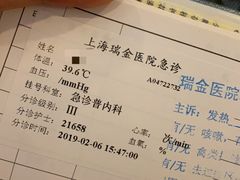 上海瑞金医院急诊
姓名
体温: 39.6℃ A04722732
血压:
/mmHg
挂号科室: 急诊普内科
分诊级别: III 心率: 次/min
分诊护士: 21658
分诊时间: 2019-02-06 15:47:00
瑞金医院
主诉: 发热
有/无 咳嗽